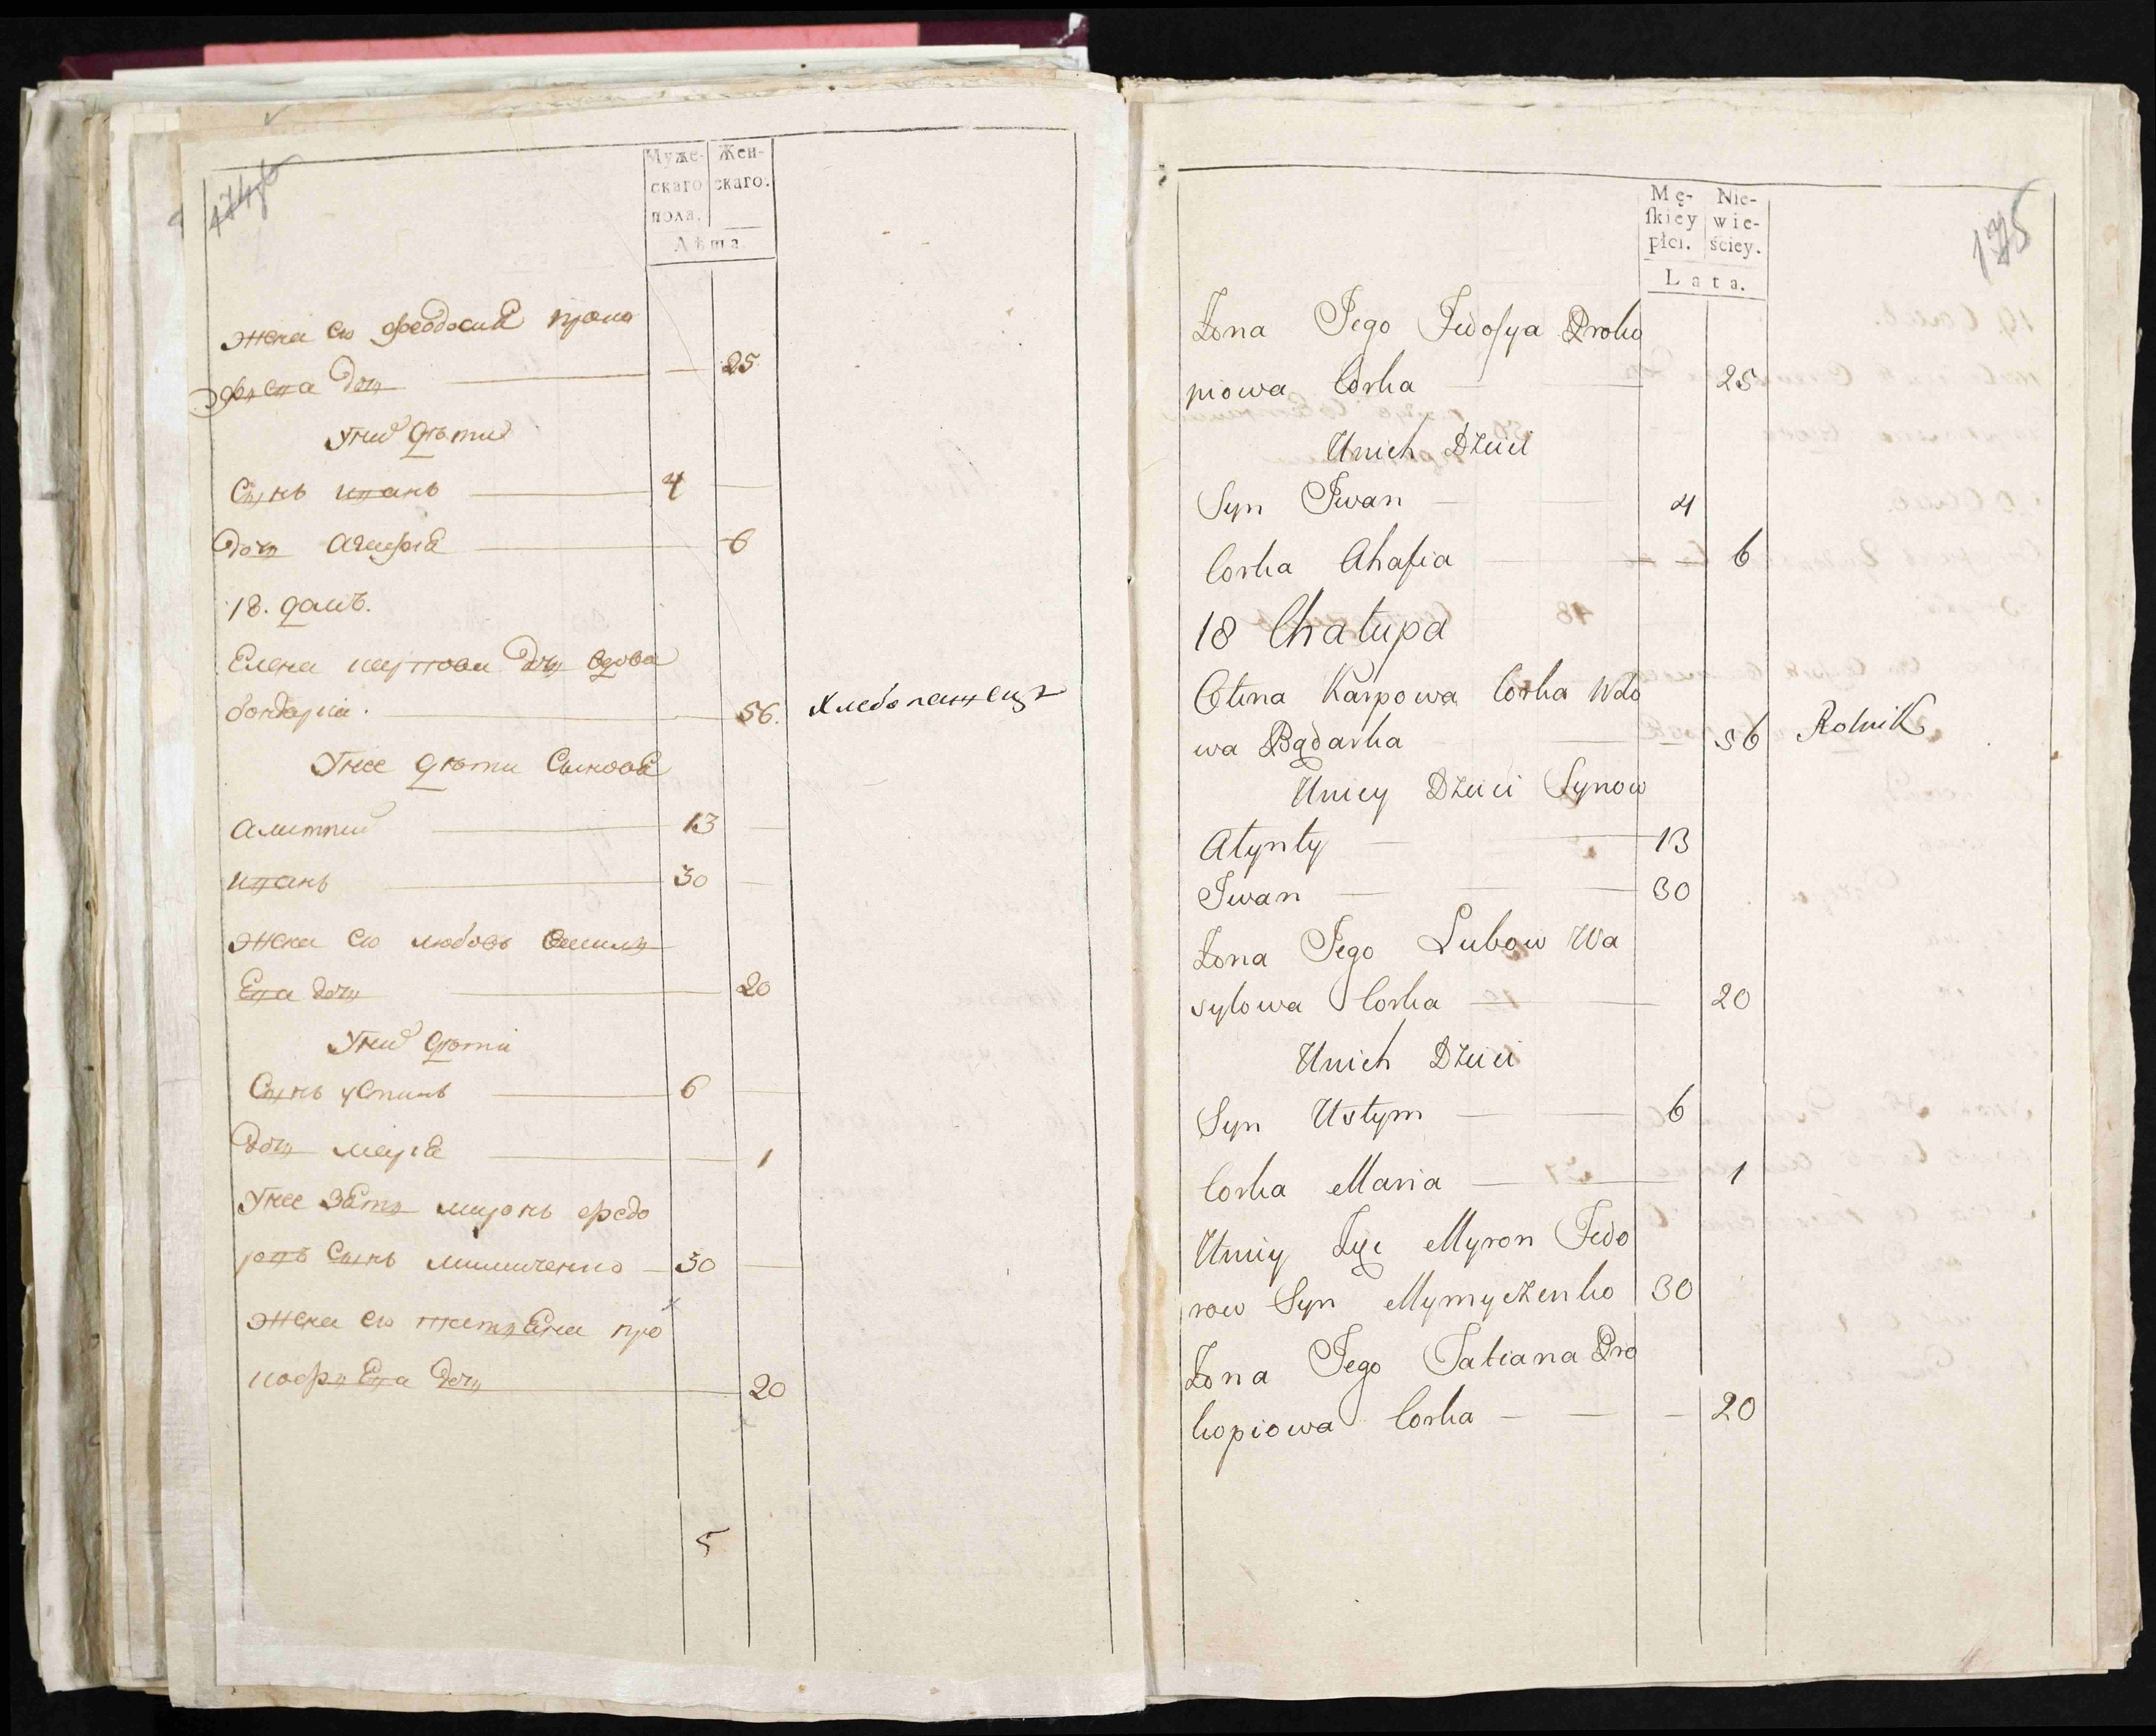 174 об
Муже-
скаго
пола.
Жен-
скаго.
Лѣта.
жена его феодосия проко
фьева дочь 25
У них дѣти
Сынъ иванъ 4
Дочь Агафия 6
18. дамъ.
Елена карпова дочь вдова
бондарка. 56. хлебопашецъ
У нее дѣти Сыновя
алимпий 13
иванъ 30
жена его любовь василь
Ева дочь 20
У них дѣти
Сынъ устимъ 6
Дочь марія 1
У нее Зять миронъ федо
ровъ Сынъ мимиченко 30
жена его татьяна про
кофьЕва дочь 20
5
175
Mę-
ſkiey
płci.
Nie-
wie-
ściey.
Lata.
Żona Jego Fedoſya Proko
piowa Corka 25
Unich Dzieci
Syn Iwan 4
Corka Ahafia 6
18 Chałupa
Olena Karpowa Corka Wdo
wa Bądarka 56 Rolnik
Uniey Dzieci Synow
Ałynty 13
Iwan 30
Żona Jego Lubow Wa
sylowa Corka 20
Unich Dzieci
Syn Ustym 6
Corka Maria 1
Uniey Zięć Myron Fedo
row Syn Mymyczenko 30
Żona Jego Tatiana Pro
kopiowa Corka 20